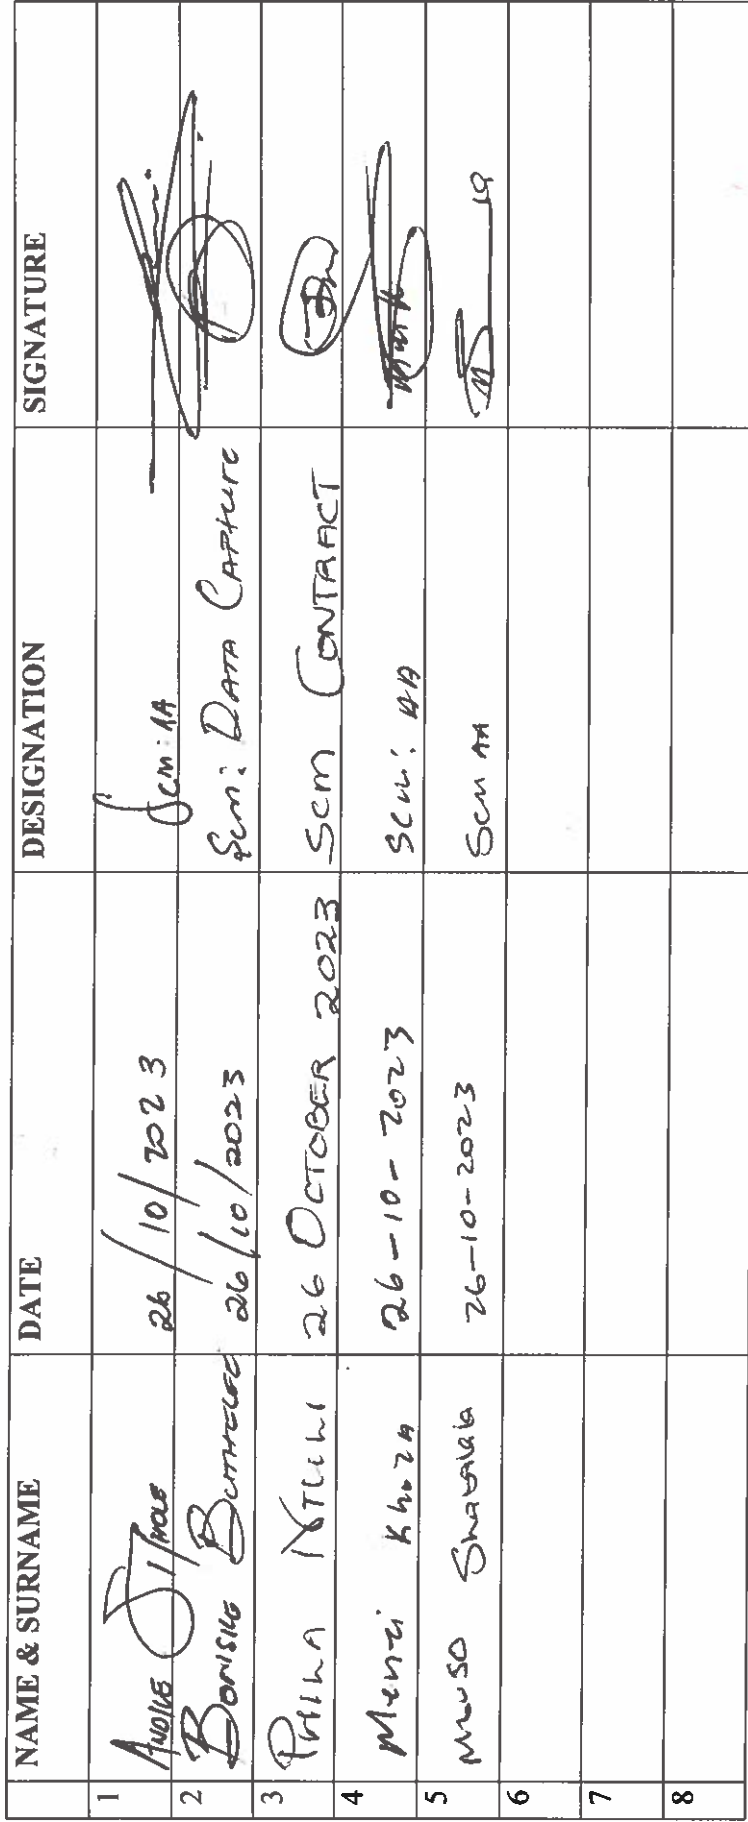 NAME & SURNAME DATE DESIGNATION SIGNATURE
1 Andile Sithole 26/10/2023 SCM: AA
2 Bonisile Buthelezi 26/10/2023 SCM: DATA CAPTURE
3 26 OCTOBER 2023 SCM CONTRACT
4 Menzi Khoza 26-10-2023 SCM: AA
5 Shabalala 26-10-2023 SCM AA
6
7
8